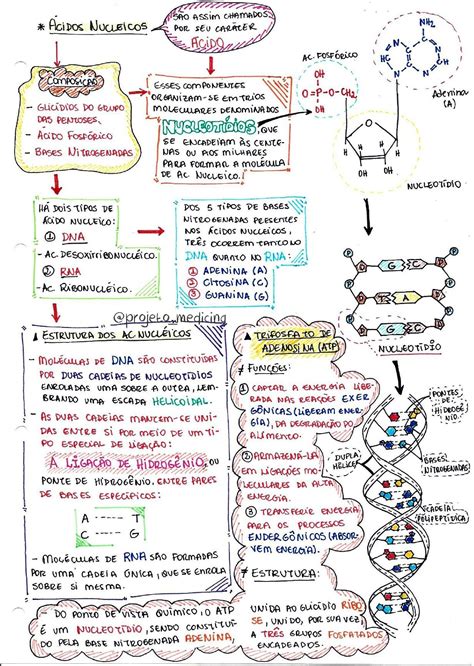 * ÁCIDOS NUCLEICOS
SÃO ASSIM CHAMADOS
POR SEU CARÁTER
ÁCIDO
COMPOSIÇÃO
- GLICÍDIOS DO GRUPO
DAS PENTOSES.
- ÁCIDO FOSFÓRICO
- BASES NITROGENADAS
ESSES COMPONENTES
ORGANIZAM-SE EM TRIOS
MOLECULARES DENOMINADOS
NUCLEOTÍDIOS, QUE
SE ENCADEIAM ÀS CENTE-
NAS OU AOS MILHARES
PARA FORMAR A MOLÉCULA
DE AC. NUCLEICO.
AC. FOSFÓRICO
OH
O=P-O-CH₂
OH
O
OH
OH
NH₂
N
N
HC
CH
N
N
Adenina
(A)
NUCLEOTÍDIO
HÁ DOIS TIPOS DE
ÁCIDO NUCLEICO:
① DNA
- AC. DESOXIRRIBONUCLÉICO.
② RNA
- AC. RIBONUCLÉICO.
DOS 5 TIPOS DE BASES
NITROGENADAS PRESENTES
NOS ÁCIDOS NUCLEICOS,
TRÊS OCORREM TANTO NO
DNA QUANTO NO RNA:
① ADENINA (A)
② CITOSINA (C)
③ GUANINA (G)
P D G C D P
P D T A D P
P D C G D P
NUCLEOTÍDIO
@projeto_medicing
▲ ESTRUTURA DOS AC. NUCLÉICOS
- MOLÉCULAS DE DNA SÃO CONSTITUÍDAS
POR DUAS CADEIAS DE NUCLEOTÍDIOS
ENROLADAS UMA SOBRE A OUTRA, LEM-
BRANDO UMA ESCADA HELICOIDAL.
- AS DUAS CADEIAS MANTEM-SE UNI-
DAS ENTRE SI POR MEIO DE UM TI-
PO ESPECIAL DE LIGAÇÃO:
A LIGAÇÃO DE HIDROGÊNIO, OU
PONTE DE HIDROGÊNIO, ENTRE PARES
DE BASES ESPECÍFICOS:
A --- T
C --- G
- MOLÉCULAS DE RNA SÃO FORMADAS
POR UMA CADEIA ÚNICA, QUE SE ENROLA
SOBRE SI MESMA.
▲ TRIFOSFATO DE
ADENOSINA (ATP)
≠ FUNÇÕES:
① CAPTAR A ENERGIA LIBE-
RADA NAS REAÇÕES EXER
GÔNICAS (LIBERAM ENER-
GIA), DA DEGRADAÇÃO DO
ALIMENTO.
② ARMAZENÁ-LA
EM LIGAÇÕES MO-
LECULARES DA ALTA
ENERGIA.
③ TRANSFERIR ENERGIA
PARA OS PROCESSOS
ENDERGÔNICOS (ABSOR-
VEM ENERGIA).
≠ ESTRUTURA:
DO PONTO DE VISTA QUÍMICO, O ATP
É UM NUCLEOTÍDIO, SENDO CONSTITUÍ-
DO PELA BASE NITROGENADA ADENINA,
UNIDA AO GLICÍDIO RIBO
SE, UNIDO, POR SUA VEZ,
A TRÊS GRUPOS FOSFATADOS
ENCADEADOS.
PONTES
DE
HIDROGÊ-
NIO.
DUPLA
HÉLICE
BASES
NITROGENADAS
CADEIA
POLIPEPTÍDICA